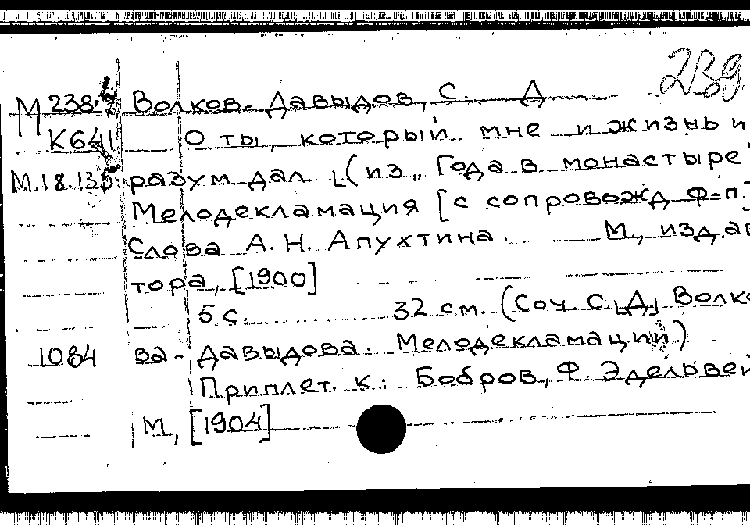 239
М 238-2 Волков-Давыдов, С. Д
К641 О ты, который мне и жизнь и
М.18.135 разум дал (из „Года в монастыре"
Мелодекламация [с сопровожд ф-п.]
Слова А. Н. Апухтина. М., изд. ав
тора, [1900]
5 с. 32 см. (Соч С. Д. Волко
1084 ва-Давыдова. Мелодекламации)
Приплет. к: Бобров, Ф. Эдельвей
М, [1904]